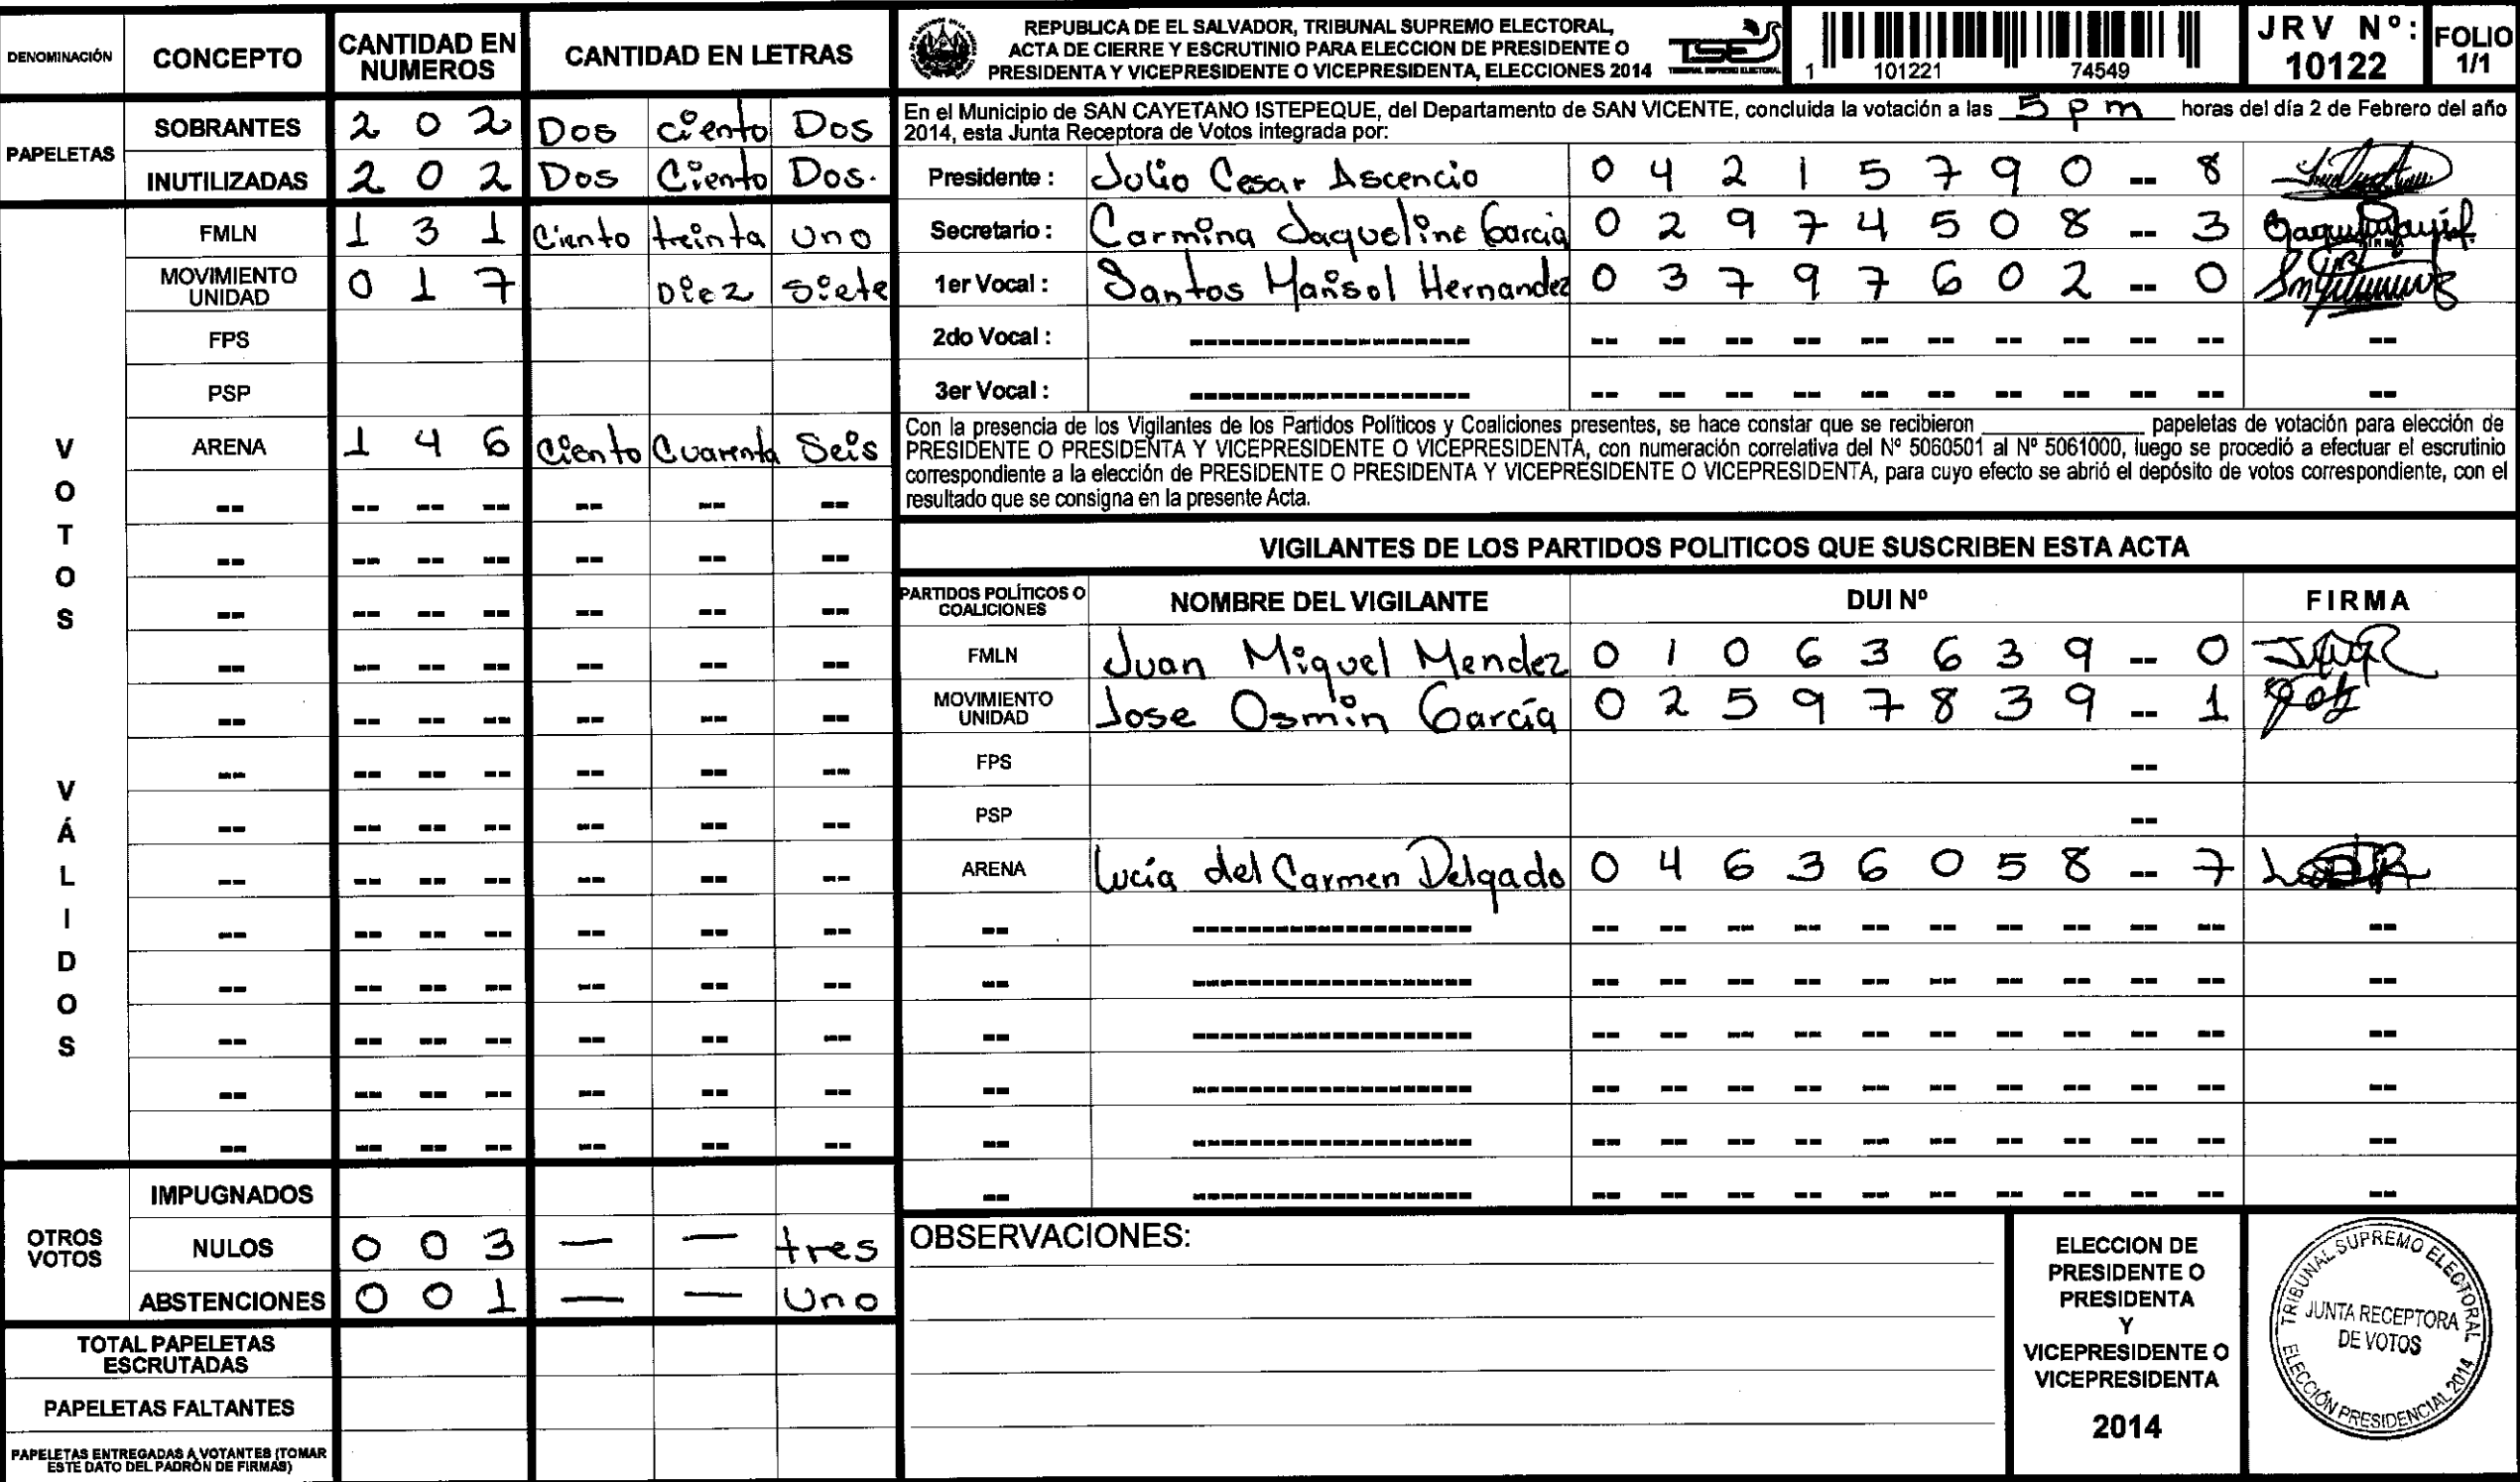 DENOMINACIÓN CONCEPTO CANTIDAD EN NUMEROS CANTIDAD EN LETRAS
PAPELETAS
SOBRANTES 2 0 2 Dos ciento Dos
INUTILIZADAS 2 0 2 Dos Ciento Dos.
VOTOS VÁLIDOS
FMLN 1 3 1 Ciento treinta uno
MOVIMIENTO UNIDAD 0 1 7 Diez Siete
FPS
PSP
ARENA 1 4 6 Ciento Cuarenta Seis
OTROS VOTOS
IMPUGNADOS
NULOS 0 0 3 — — tres
ABSTENCIONES 0 0 1 — — Uno
TOTAL PAPELETAS ESCRUTADAS
PAPELETAS FALTANTES
PAPELETAS ENTREGADAS A VOTANTES (TOMAR
ESTE DATO DEL PADRÓN DE FIRMAS)
REPUBLICA DE EL SALVADOR, TRIBUNAL SUPREMO ELECTORAL,
ACTA DE CIERRE Y ESCRUTINIO PARA ELECCION DE PRESIDENTE O
PRESIDENTA Y VICEPRESIDENTE O VICEPRESIDENTA, ELECCIONES 2014
TSE
TRIBUNAL SUPREMO ELECTORAL
1 101221 74549
JRV Nº: 10122
FOLIO 1/1
En el Municipio de SAN CAYETANO ISTEPEQUE, del Departamento de SAN VICENTE, concluida la votación a las 5 pm horas del día 2 de Febrero del año
2014, esta Junta Receptora de Votos integrada por:
Presidente : Julio Cesar Ascencio 0 4 2 1 5 7 9 0 -- 8
Secretario : Carmina Jaqueline Garcia 0 2 9 7 4 5 0 8 -- 3
1er Vocal : Santos Marisol Hernandez 0 3 7 9 7 6 0 2 -- 0
2do Vocal :
3er Vocal :
Con la presencia de los Vigilantes de los Partidos Políticos y Coaliciones presentes, se hace constar que se recibieron ____________ papeletas de votación para elección de
PRESIDENTE O PRESIDENTA Y VICEPRESIDENTE O VICEPRESIDENTA, con numeración correlativa del Nº 5060501 al Nº 5061000, luego se procedió a efectuar el escrutinio
correspondiente a la elección de PRESIDENTE O PRESIDENTA Y VICEPRESIDENTE O VICEPRESIDENTA, para cuyo efecto se abrió el depósito de votos correspondiente, con el
resultado que se consigna en la presente Acta.
VIGILANTES DE LOS PARTIDOS POLITICOS QUE SUSCRIBEN ESTA ACTA
PARTIDOS POLÍTICOS O COALICIONES NOMBRE DEL VIGILANTE DUI Nº FIRMA
FMLN Juan Miguel Mendez 0 1 0 6 3 6 3 9 -- 0
MOVIMIENTO UNIDAD Jose Osmin García 0 2 5 9 7 8 3 9 -- 1
FPS --
PSP --
ARENA Lucía del Carmen Delgado 0 4 6 3 6 0 5 8 -- 7
OBSERVACIONES:
ELECCION DE
PRESIDENTE O
PRESIDENTA
Y
VICEPRESIDENTE O
VICEPRESIDENTA
2014
TRIBUNAL SUPREMO ELECTORAL
JUNTA RECEPTORA
DE VOTOS
ELECCIÓN PRESIDENCIAL 2014